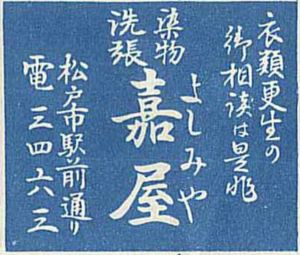 衣類更生の
御相談は是非
染物
洗張
よしみや
嘉屋
松戸市駅前通り
電三四六三